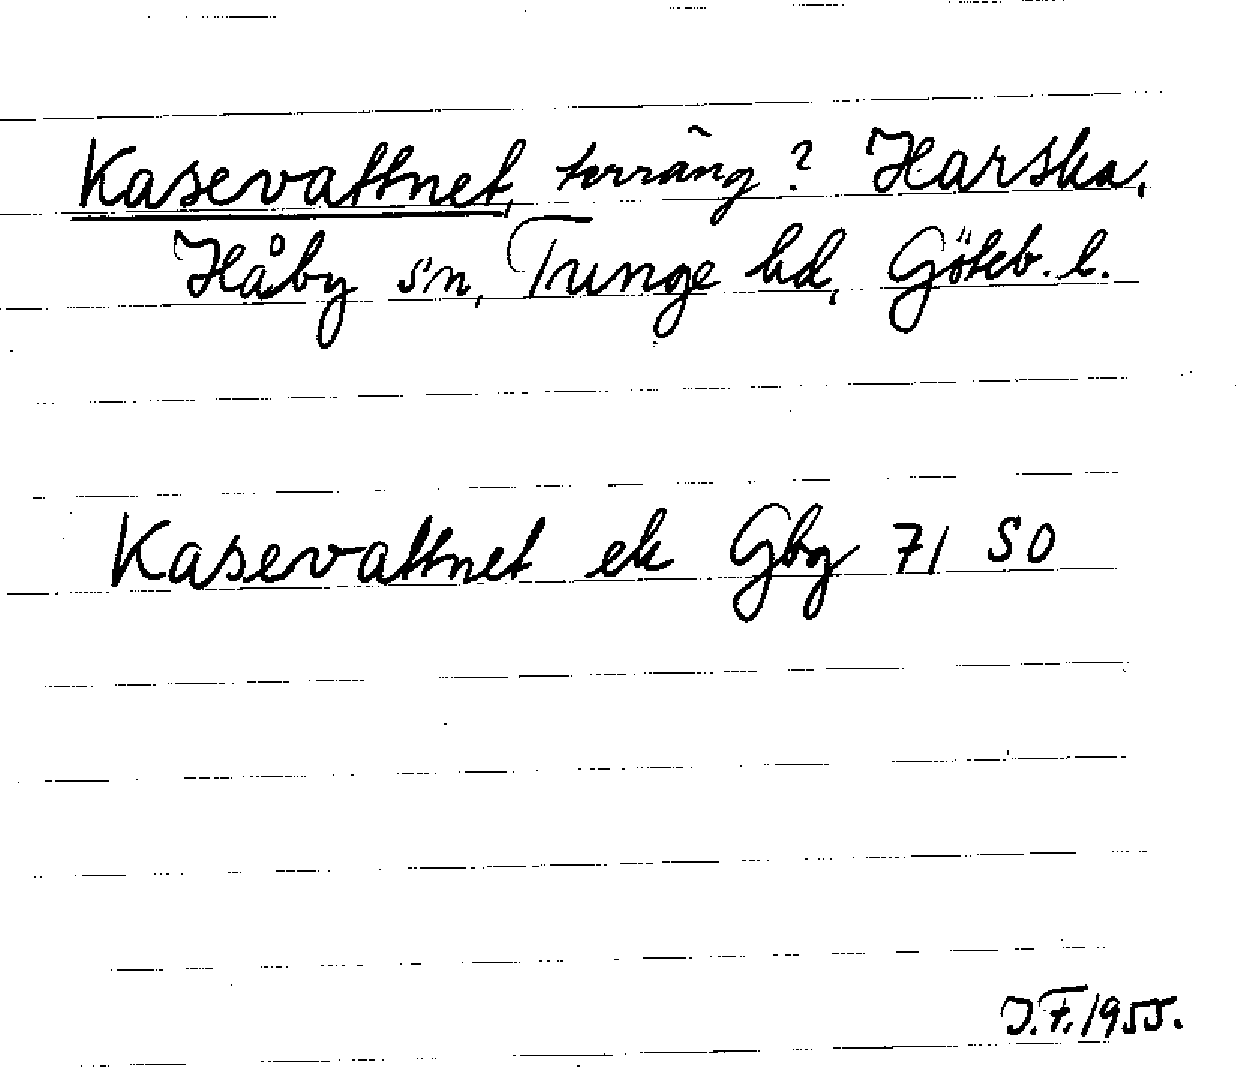 Kasevattnet, terräng? Harska,
Håby sn, Tunge hd, Göteb. l.
Kasevattnet ek Gbg 71 SO
J.F. 1955.